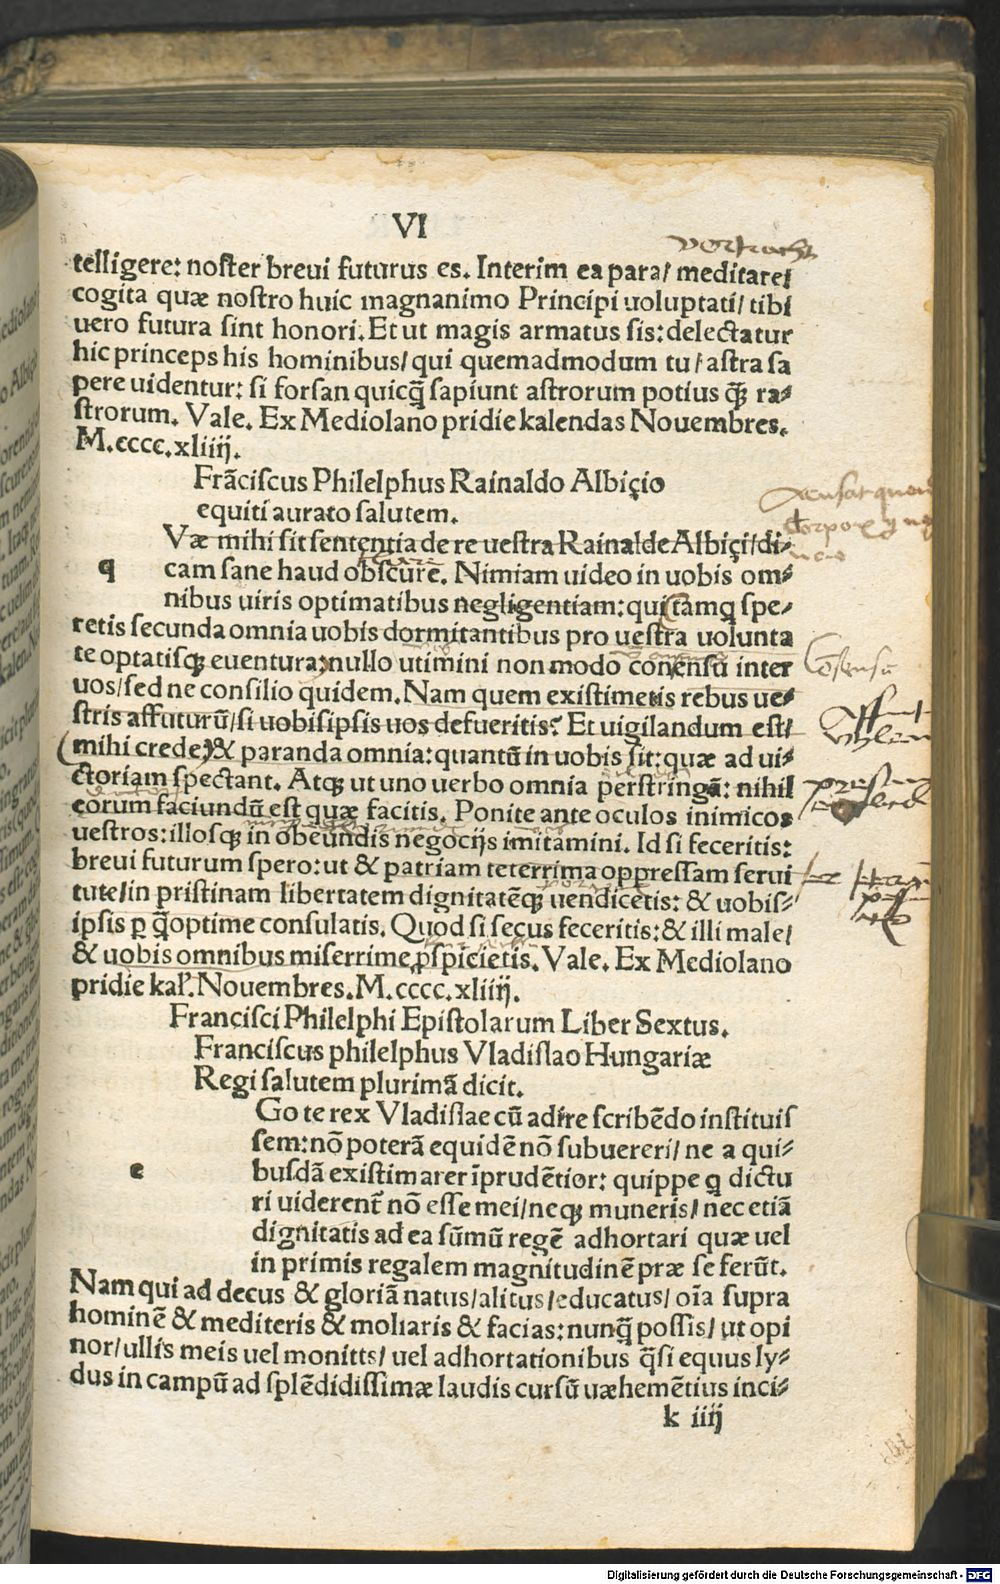 VI
telligere: noster breui futurus es. Interim ea para/ meditare/
cogita quæ nostro huic magnanimo Principi uoluptati/ tibi
uero futura sint honori. Et ut magis armatus sis: delectatur
hic princeps his hominibus/ qui quemadmodum tu/ astra sa
pere uidentur: si forsan quicꝗ̃ sapiunt astrorum potius ꝗ̃ ra⸗
strorum. Vale. Ex Mediolano pridie kalendas Nouembres.
M.cccc.xliiij.
Frãciscus Philelphus Rainaldo Albiçio
equiti aurato salutem.
Væ mihi sit sententia de re uestra Rainalde Albiçi/ di⸗
q cam sane haud obscure. Nimiam uideo in uobis om⸗
nibus uiris optimatibus negligentiam: qui tamꝗ spe⸗
retis secunda omnia uobis dormitantibus pro uestra uolunta
te optatisqꝫ euentura; nullo utimini non modo conensu inter
uos/ sed ne consilio quidem. Nam quem existimetis rebus ue⸗
stris affuturũ/ si uobisipsis uos defueritis? Et uigilandum est/
(mihi crede) & paranda omnia: quantũ in uobis sit: quæ ad ui⸗
ctoriam spectant. Atqꝫ ut uno uerbo omnia perstringã: nihil
eorum faciundũ est quæ facitis. Ponite ante oculos inimicos
uestros: illosqꝫ in obeundis negocijs imitamini. Id si feceritis:
breui futurum spero: ut & patriam teterrima oppressam serui
tute/ in pristinam libertatem dignitatẽqꝫ uendicetis: & uobis⸗
ipsis ꝑ ꝗ̃ optime consulatis. Quod si secus feceritis: & illi male/
& uobis omnibus miserrime ꝓspicietis. Vale. Ex Mediolano
pridie kal'. Nouembres. M.cccc.xliiij.
Francisci Philelphi Epistolarum Liber Sextus.
Franciscus philelphus Vladislao Hungariæ
Regi salutem plurimã dicit.
Go te rex Vladislae cũ adire scribẽdo instituis
sem: nõ poterã equidẽ nõ subuereri/ ne a qui⸗
e busdã existimarer ĩprudẽtior: quippe ꝗ dictu
ri uiderent̃ nõ esse mei/ neqꝫ muneris/ nec etiã
dignitatis ad ea sũmũ regẽ adhortari quæ uel
in primis regalem magnitudinẽ præ se ferũt.
Nam qui ad decus & gloriã natus/ alitus/ educatus/ oĩa supra
hominẽ & mediteris & moliaris & facias: nunꝗ̃ possis/ ut opi
nor/ ullis meis uel monitts/ uel adhortationibus ꝗ̃si equus ly⸗
dus in campũ ad splẽdidissimæ laudis cursũ uæhemẽtius inci⸗
k iiij
Digitalisierung gefördert durch die Deutsche Forschungsgemeinschaft - DFG